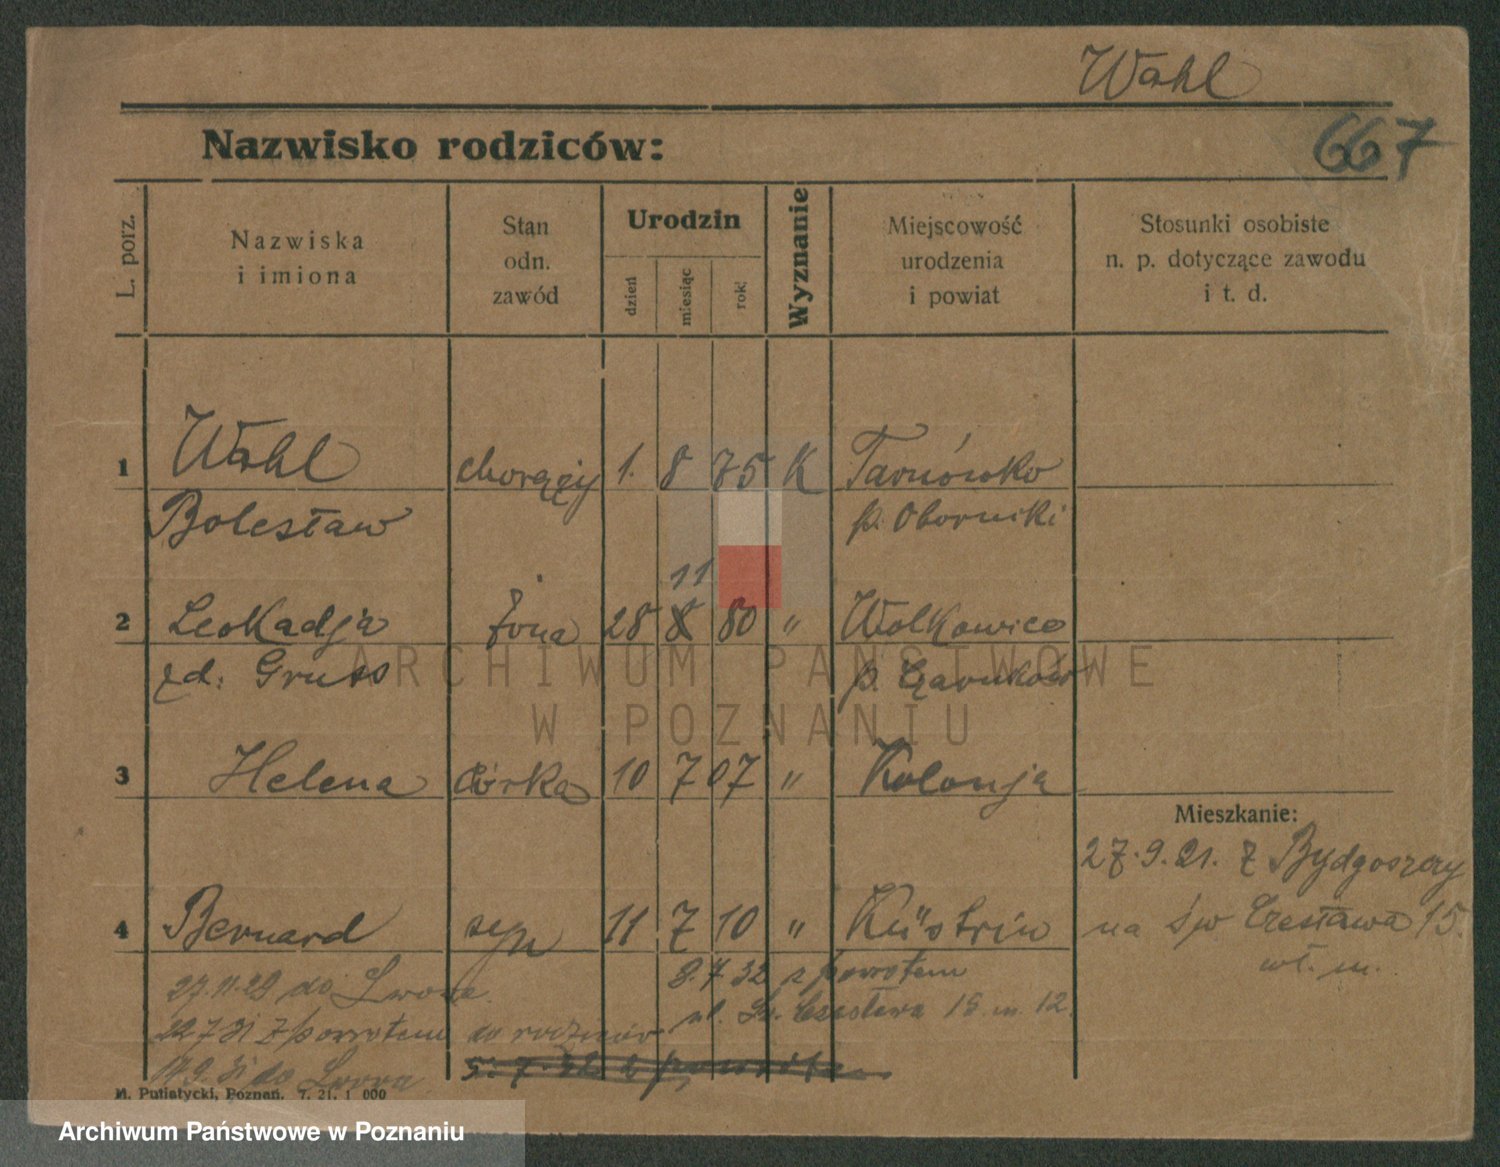 Wahl
667
Nazwisko rodziców:
L. porz.
Nazwiska
i imiona
Stan
odn.
zawód
Urodzin
dzień
miesiąc
rok
Wyznanie
Miejscowość
urodzenia
i powiat
Stosunki osobiste
n. p. dotyczące zawodu
i t. d.
1 Wahl chorąży 1. 8 75 K Tarnówko
Bolesław p. Oborniki
11
2 Leokadja żona 28 8 80 " Wolkowice
zd: Gruss p. Czarnków
ARCHIWUM PAŃSTWOWE
W POZNANIU
3 Helena córka 10 7 07 " Kolonja
Mieszkanie:
27.9.21. z Bydgoszczy
4 Bernard syn 11 7 10 " Küstrin
na św Czesława 15.
wł. m.
27.11.29 do Lwowa
8.7 32 z powrotem
ul. Św. Czesława 15 m 12.
22 7 31 z powrotem do rodziców
9. 31 do Lwowa
5. 7. 32 z powrotem
M. Putiatycki, Poznań. 7. 21. 1 000
Archiwum Państwowe w Poznaniu